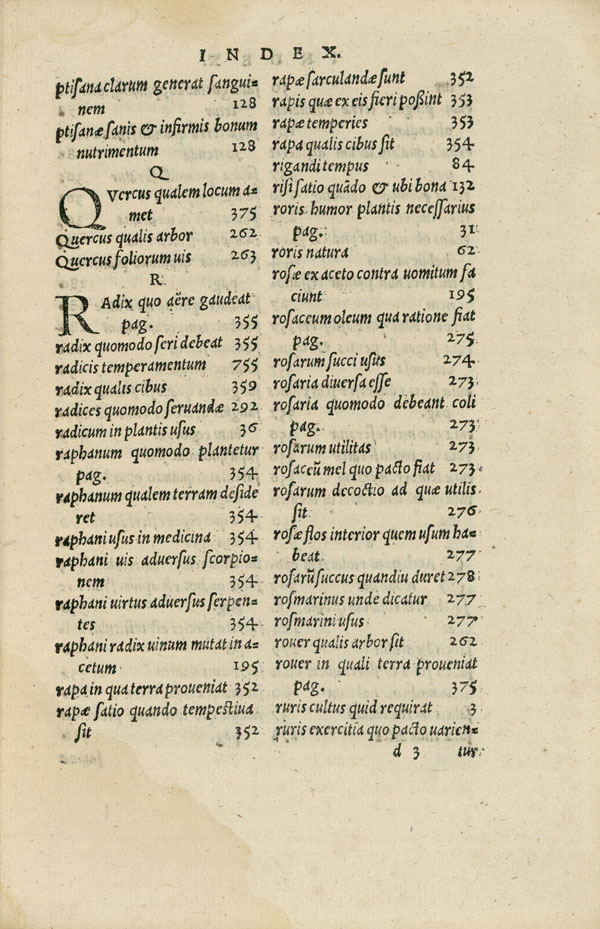 INDEX.
ptisana clarum generat sangui=
nem 128
ptisanæ sanis & infirmis bonum
nutrimentum 128
Q
QVercus qualem locum a=
met 375
Quercus qualis arbor 262
Quercus foliorum uis 263
R
RAdix quo aëre gaudeat
pag. 355
radix quomodo seri debeat 355
radicis temperamentum 755
radix qualis cibus 359
radices quomodo seruandæ 292
radicum in plantis usus 36
raphanum quomodo plantetur
pag. 354
raphanum qualem terram deside
ret 354
raphani usus in medicina 354
raphani uis aduersus scorpio=
nem 354
raphani uirtus aduersus serpen=
tes 354
raphani radix uinum mutat in a=
cetum 195
rapa in qua terra proueniat 352
rapæ satio quando tempestiua
sit 352
rapæ sarculandæ sunt 352
rapis quæ ex eis fieri poßint 353
rapæ temperies 353
rapa qualis cibus sit 354
rigandi tempus 84
risi satio quādo & ubi bona 132
roris humor plantis necessarius
pag. 31
roris natura 62
rosæ ex aceto contra uomitum fa
ciunt 195
rosaceum oleum qua ratione fiat
pag. 275
rosarum succi usus 274
rosaria diuersa esse 273
rosaria quomodo debeant coli
pag. 273
rosarum utilitas 273
rosaceū mel quo pacto fiat 273
rosarum decoctio ad quæ utilis
sit 276
rosæ flos interior quem usum ha=
beat 277
rosarū succus quandiu duret 278
rosmarinus unde dicatur 277
rosmarini usus 277
rouer qualis arbor sit 262
rouer in quali terra proueniat
pag. 375
ruris cultus quid requirat 3
ruris exercitia quo pacto uarien=
d 3 tur